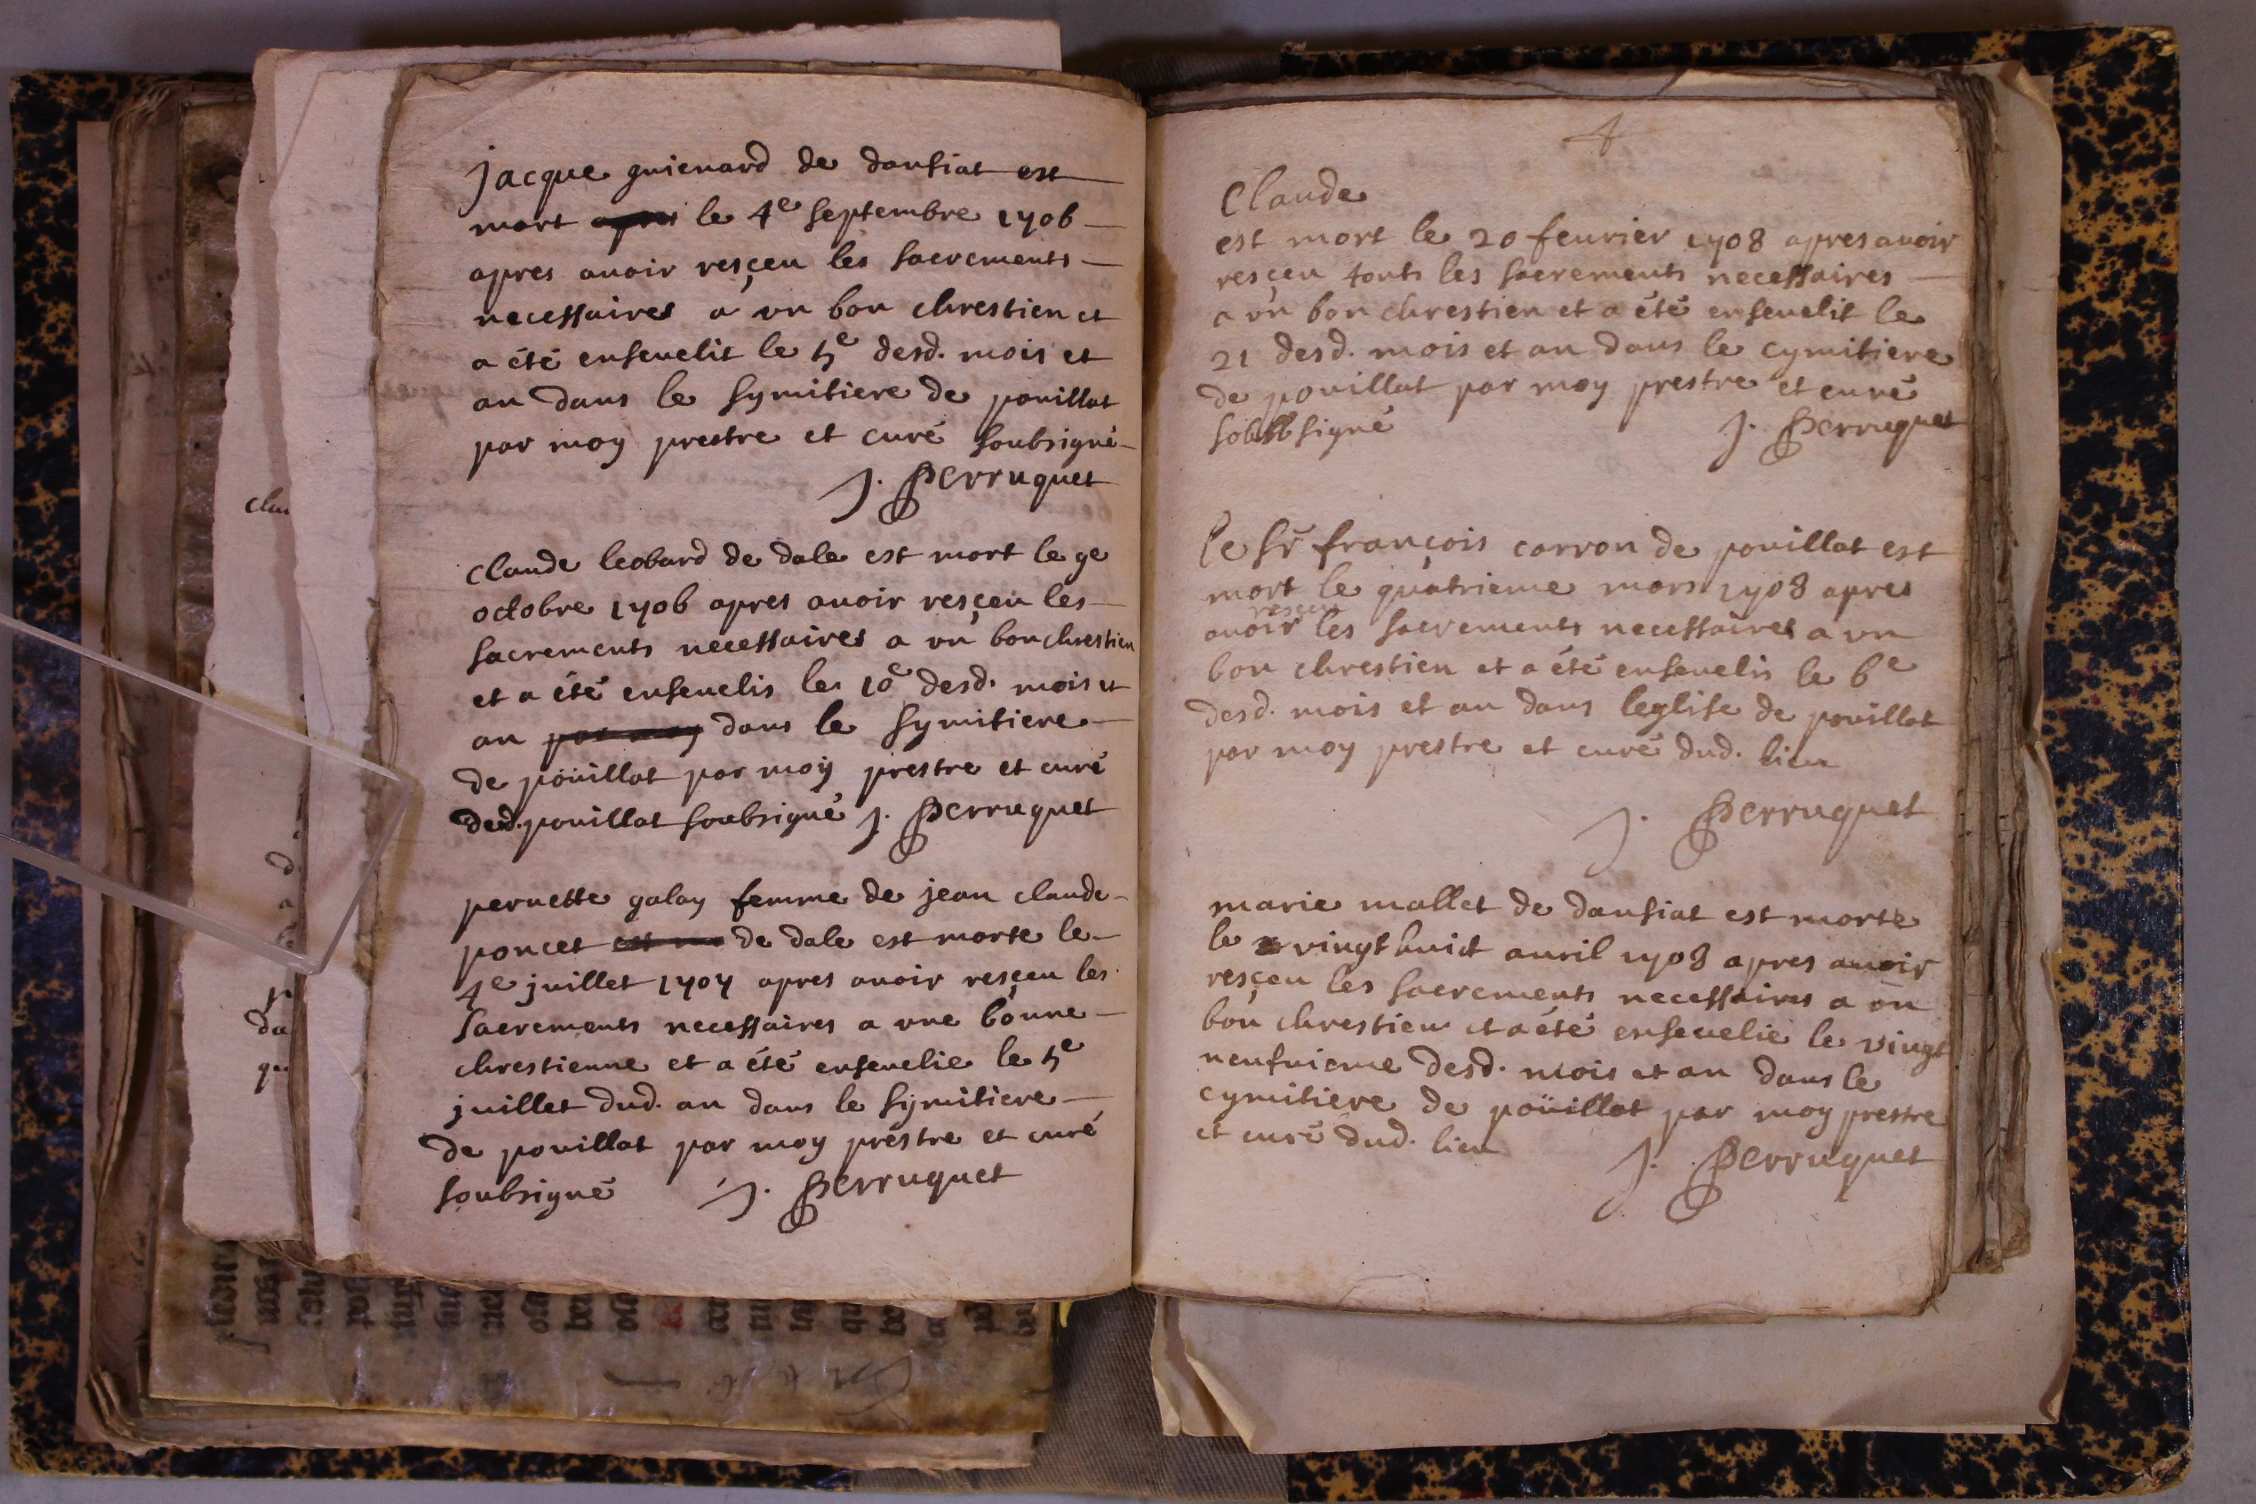 jacque guienard de dansiat est
mort apres le 4e septembre 1706
apres auoir resçeu les sacrements
necessaires a un bon chrestien et
a été enseuelit le 5e desd. mois et
an dans le symitiere de pouillat
par moy prestre et curé soubsigné
J. Perruquet
claude leobard de dale est mort le 9e
octobre 1706 apres auoir resçeu les
sacrements necessaires a un bon chrestien
et a été enseuelis le 10e desd. mois et
an par moy dans le symitiere
de poüillat par moÿ prestre et curé
dud. pouillat soubsigné J. Perruquet
pernette galay femme de jean claude
poncet est mo de dale est morte le
4e juillet 1707 apres auoir resçeu les
sacrements necessaires a une bonne
chrestienne et a été enseuelie le 5e
juillet dud. an dans le symitiere
de pouillat par moy prestre et curé
soubsigné J. Perruquet
4
Claude
est mort le 20 feurier 1708 apres auoir
resçeu touts les sacrements necessaires
a un bon chrestien et a été enseuelit le
21 desd. mois et an dans le cymitiere
de pouillat par moy prestre et curé
soubsigné J. Perruquet
le sr françois carron de pouillat est
mort le quatrieme mars 1708 apres
resçeu
auoir les sacrements necessaires a un
bon chrestien et a été enseuelis le 6e
desd. mois et an dans leglise de pouillat
par moy prestre et curé dud. lieu
J. Perruquet
marie mallet de dansiat est morte
le vingt huict auril 1708 apres auoir
resçeu les sacrements necessaires a un
bon chrestien et a été enseuelie le vingt
neufuieme desd. mois et an dans le
cymitiere de poüillat par moy prestre
et curé dud. lieu J. Perruquet